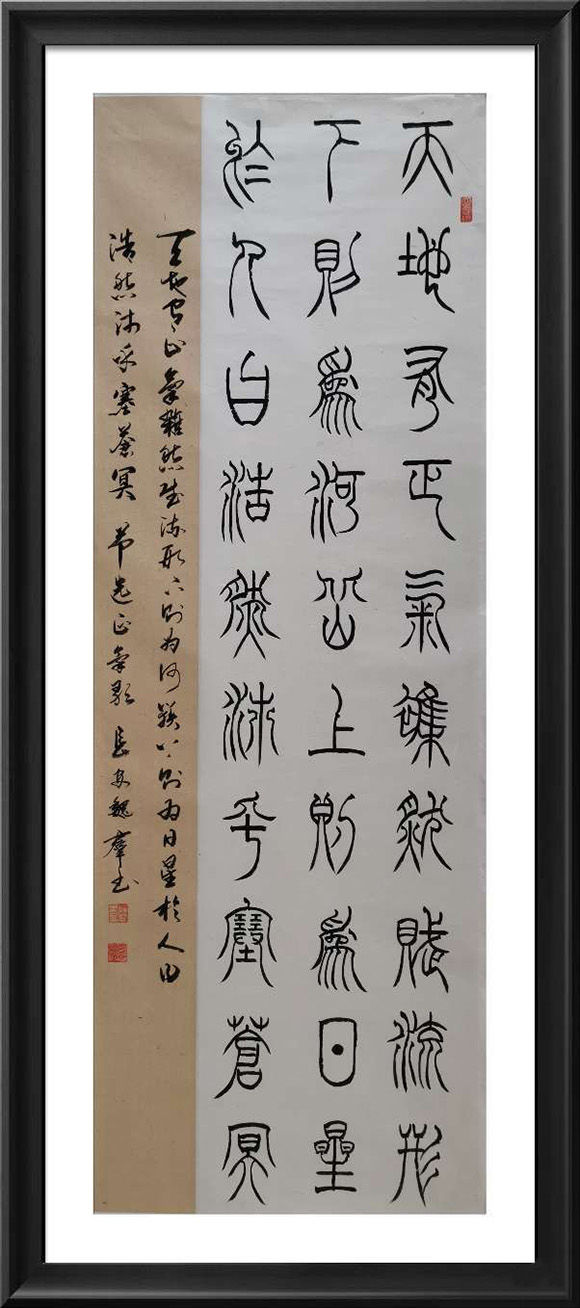 天地有正氣雜然賦流形
下則爲河岳上則爲日星
於人曰浩然沛乎塞蒼冥
天地有正氣雜然賦流形下則为河嶽上則为日星於人曰
浩然沛乎塞蒼冥 節選正氣歌 長安魏羣書